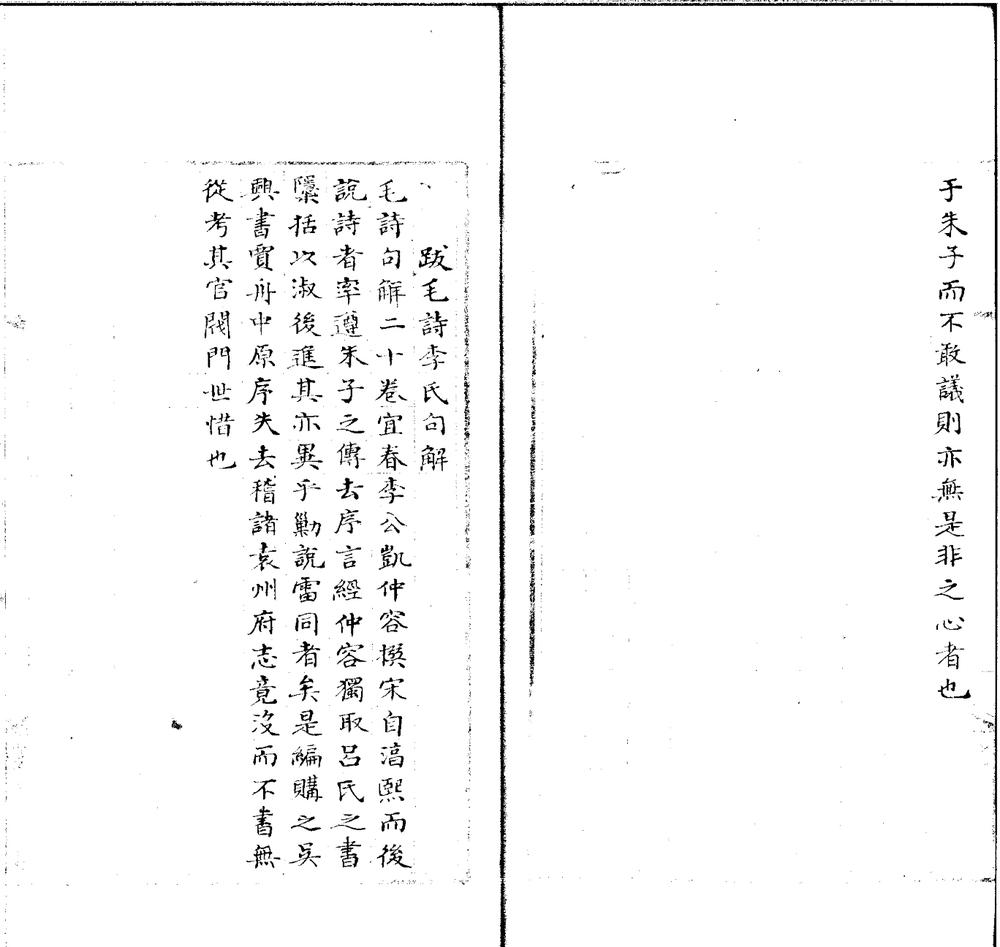 于朱子而不敢議則亦無是非之心者也
跋毛詩李氏句解
毛詩句解二十卷宜春李公凱仲容撰宋自淳熙而後
說詩者率遵朱子之傳去序言經仲容獨取呂氏之書
隱括以淑後進其亦異乎勦說雷同者矣是編購之吳
興書賈舟中原序失去稽諸袁州府志竟沒而不書無
從考其官閥門世惜也